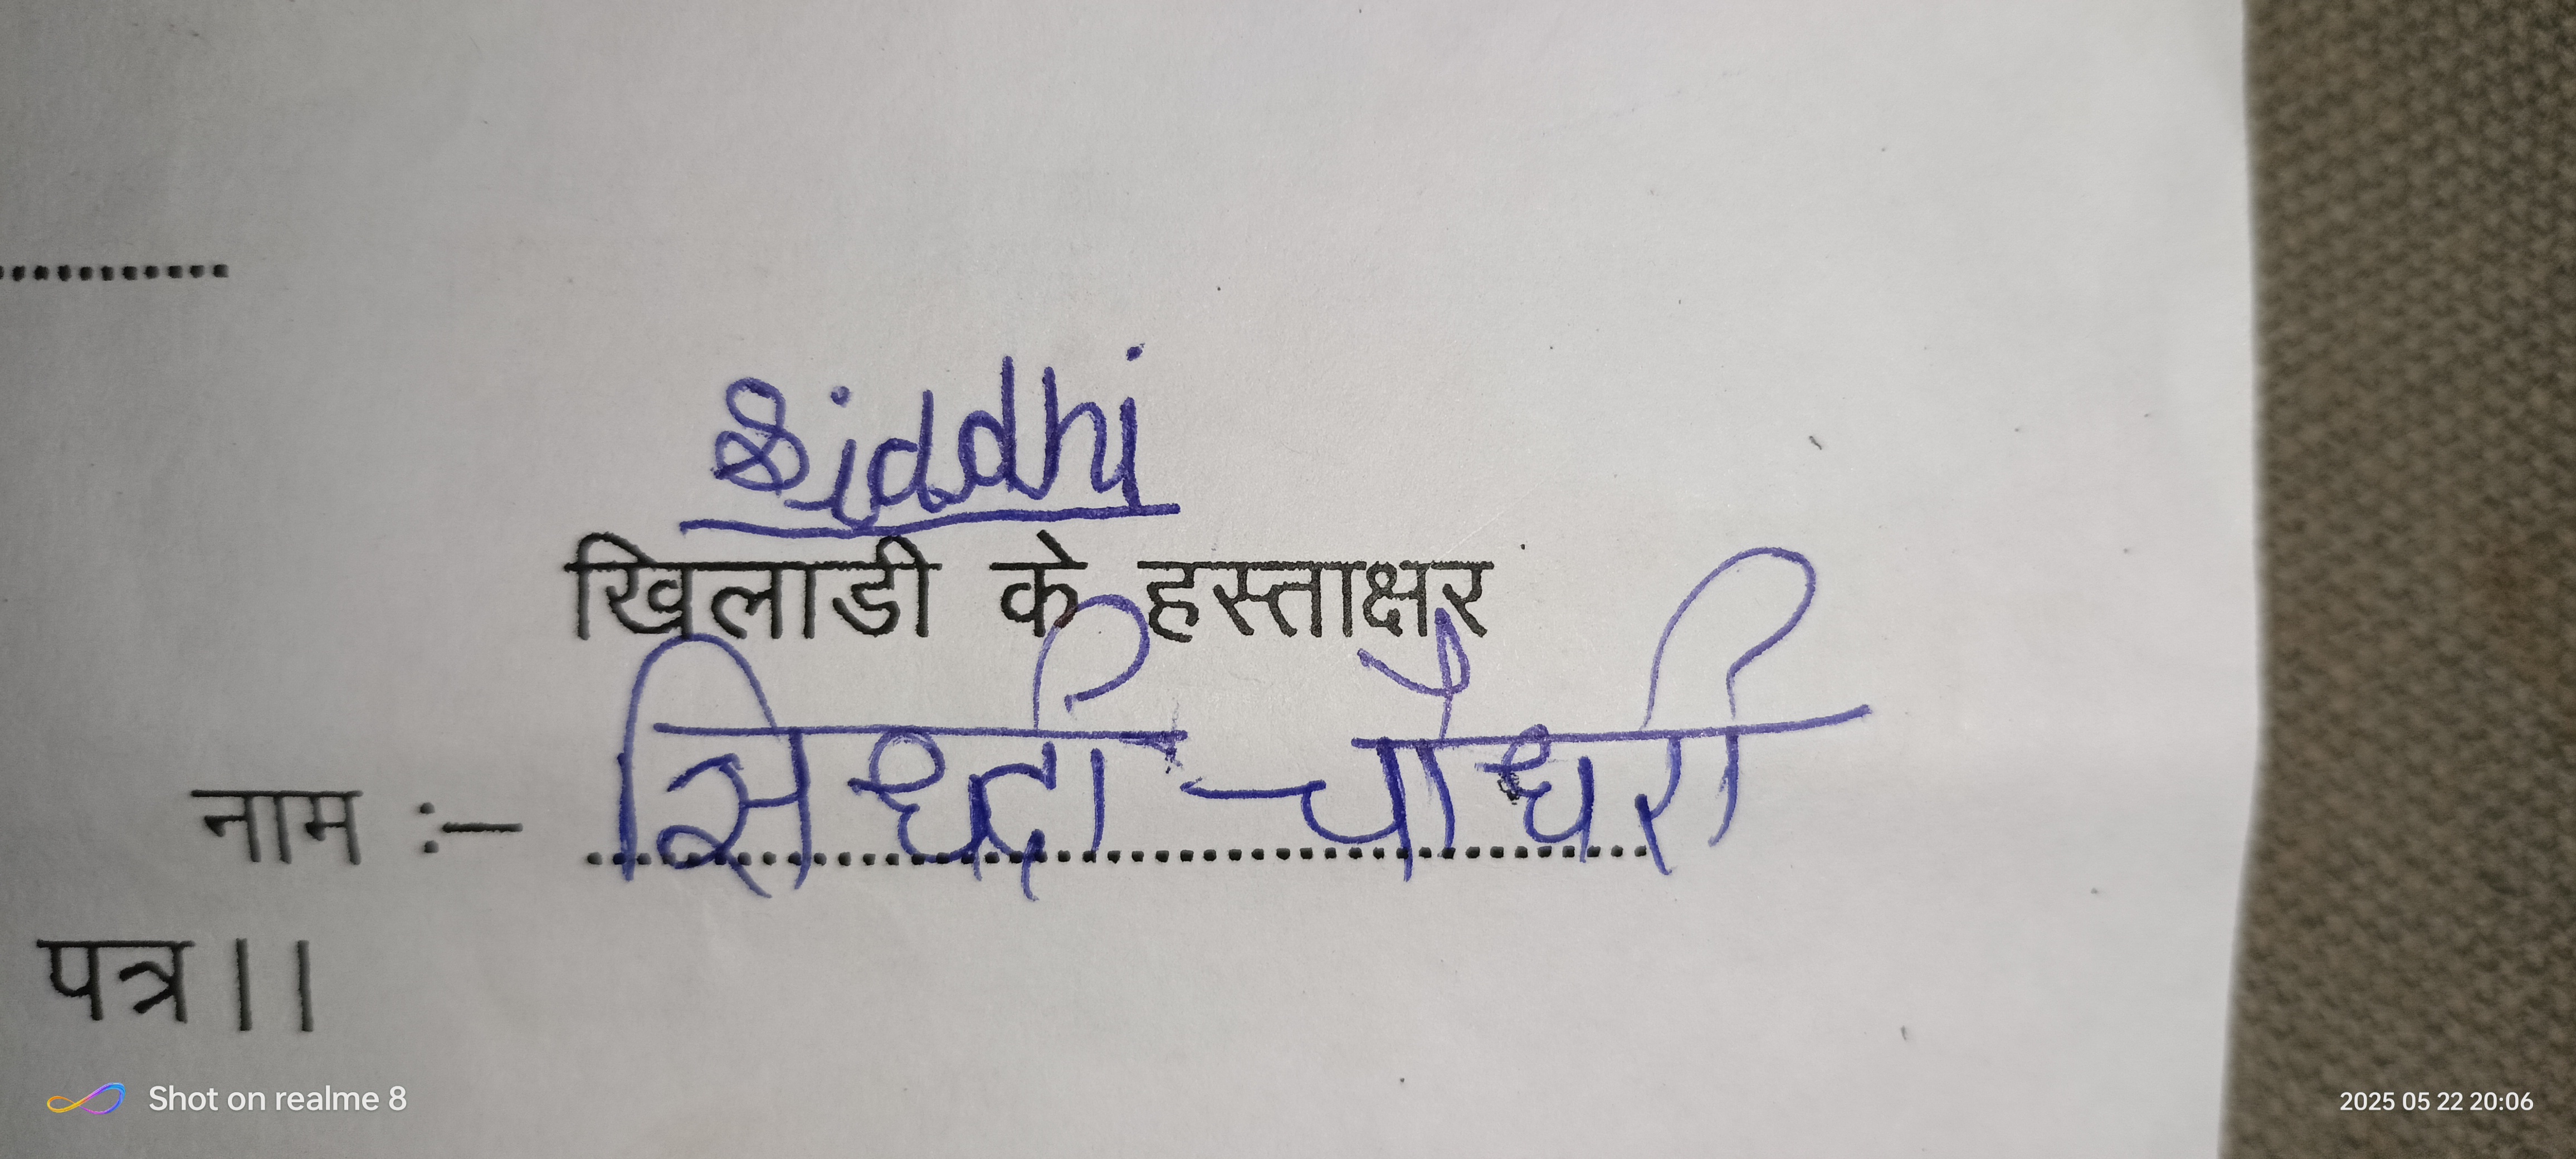 ..........
Siddhi
खिलाडी के हस्ताक्षर
नाम :— सिध्दी चौधरी
पत्र।।
Shot on realme 8
2025 05 22 20:06